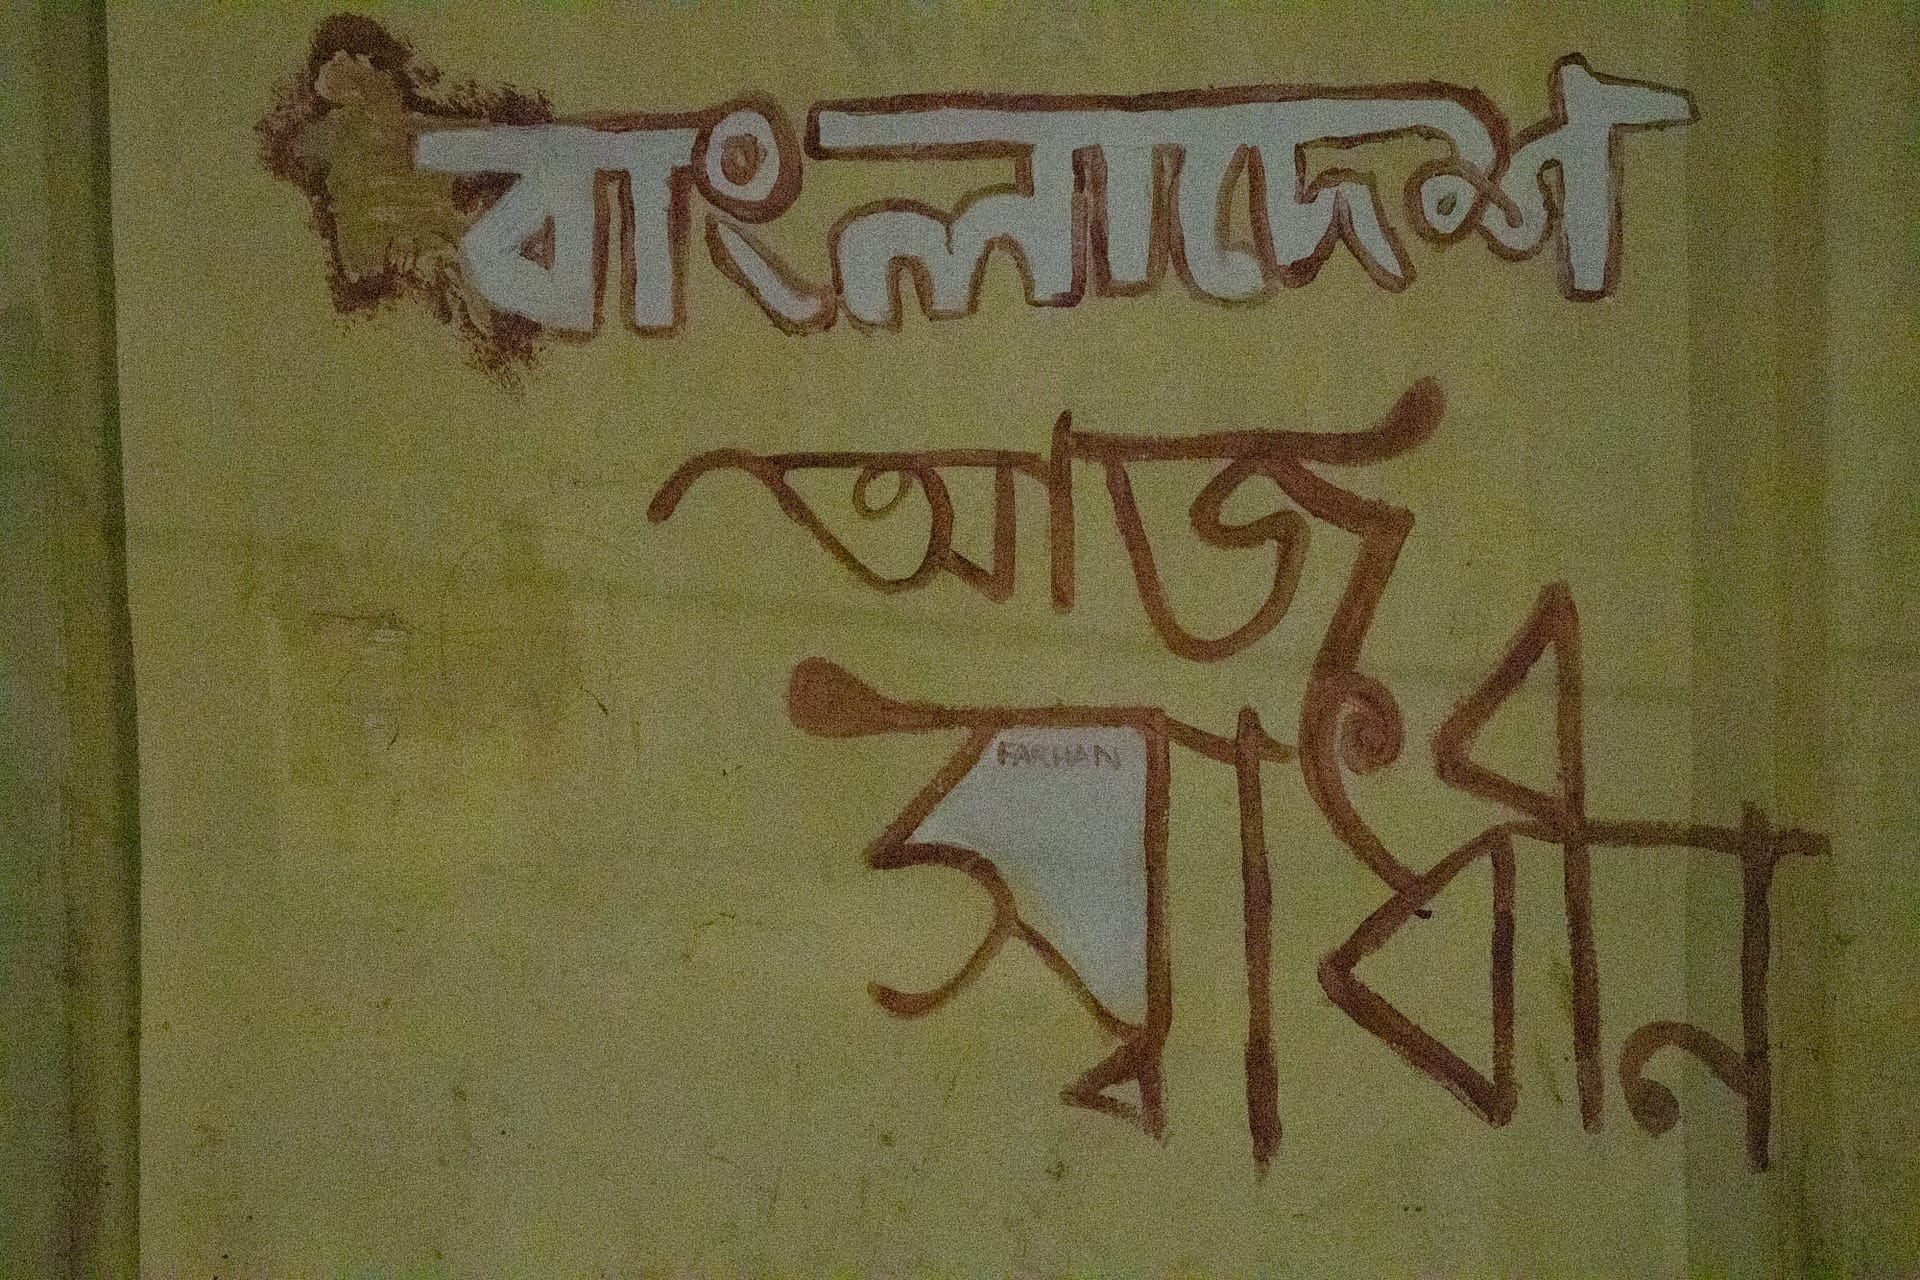 বাংলাদেশ
আজ
স্বাধীন
FARHAN